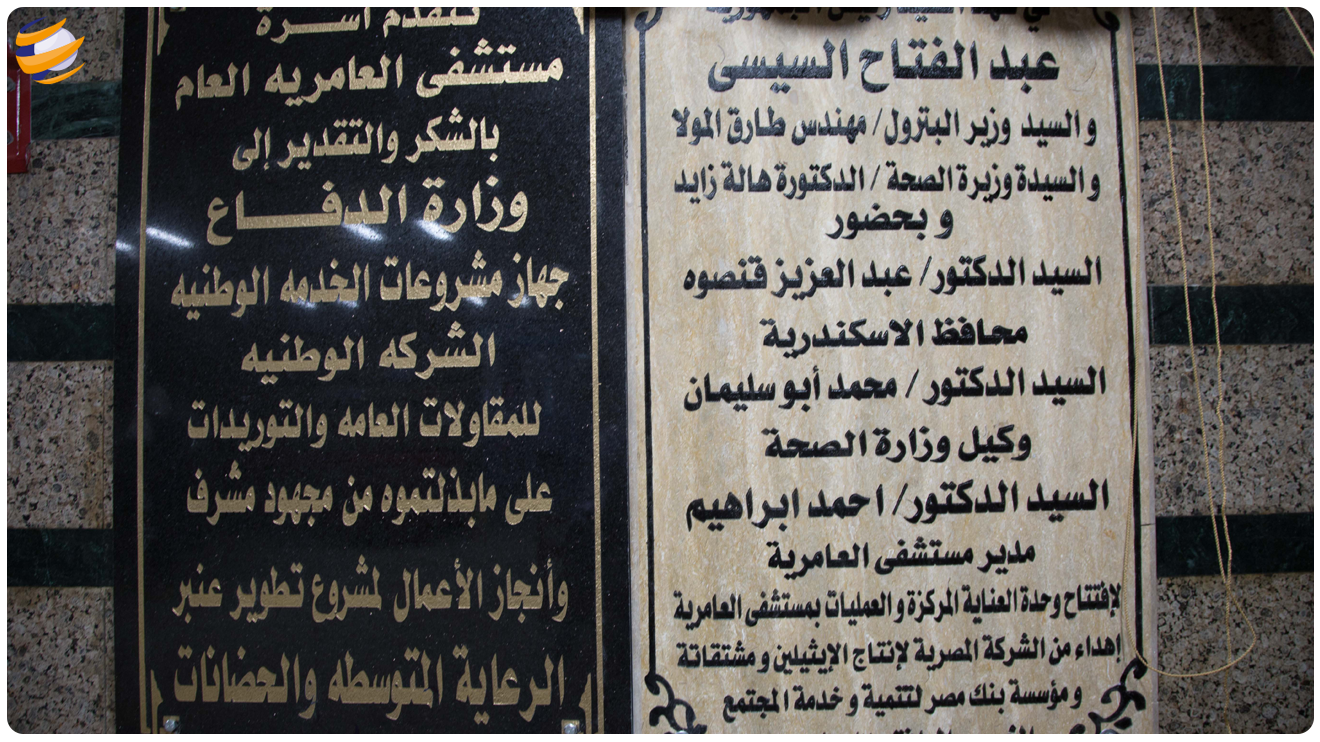 في عهد السيد رئيس الجمهورية
عبد الفتاح السيسى
و السيد وزير البترول/ مهندس طارق المولا
و السيدة وزيرة الصحة / الدكتورة هالة زايد
و بحضور
السيد الدكتور/ عبد العزيز قنصوه
محافظ الاسكندرية
السيد الدكتور / محمد أبو سليمان
وكيل وزارة الصحة
السيد الدكتور/ احمد ابراهيم
مدير مستشفى العامرية
لإفتتاح وحدة العناية المركزة و العمليات بمستشفى العامرية
إهداء من الشركة المصرية لإنتاج الإيثيلين و مشتقاتة
و مؤسسة بنك مصر لتتمية و خدمة المجتمع
تتقدم أسرة
مستشفى العامريه العام
بالشكر والتقدير إلى
وزارة الدفــاع
جهاز مشروعات الخدمه الوطنيه
الشركه الوطنيه
للمقاولات العامه والتوريدات
على مابذلتموه من مجهود مشرف
وأنجاز الأعمال لمشروع تطوير عنبر
الرعاية المتوسطه والحضانات